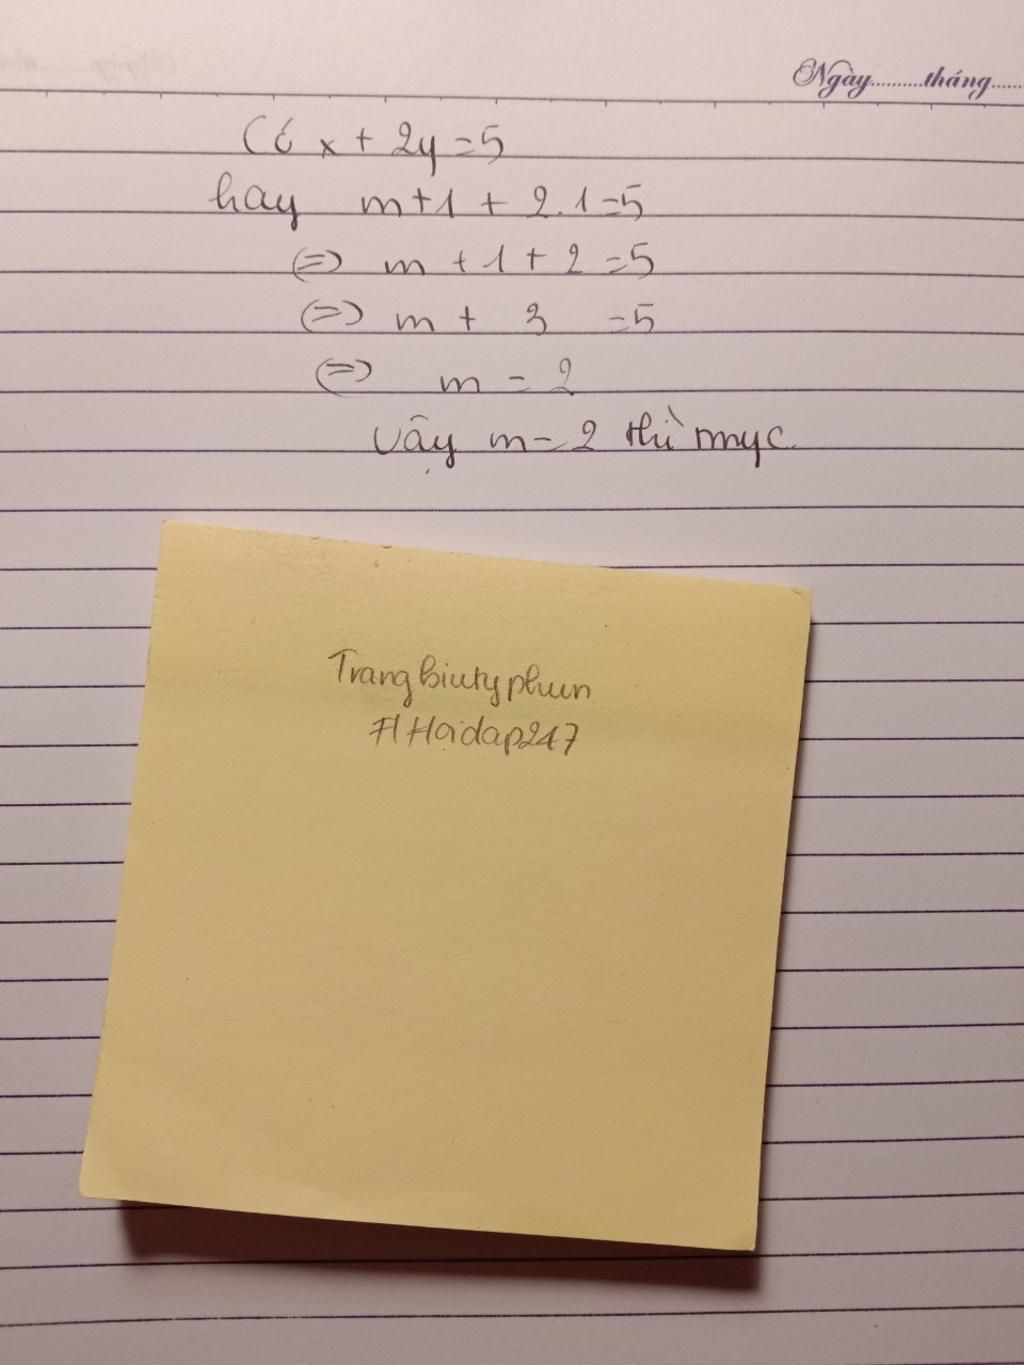 Ngày.........tháng......
Có x + 2y = 5
hay m+1 + 2.1 = 5
(=) m + 1 + 2 = 5
(=) m + 3 = 5
(=) m = 2
Vậy m = 2 thì mnyc.
Trangbiutyphun
#Hoidap247